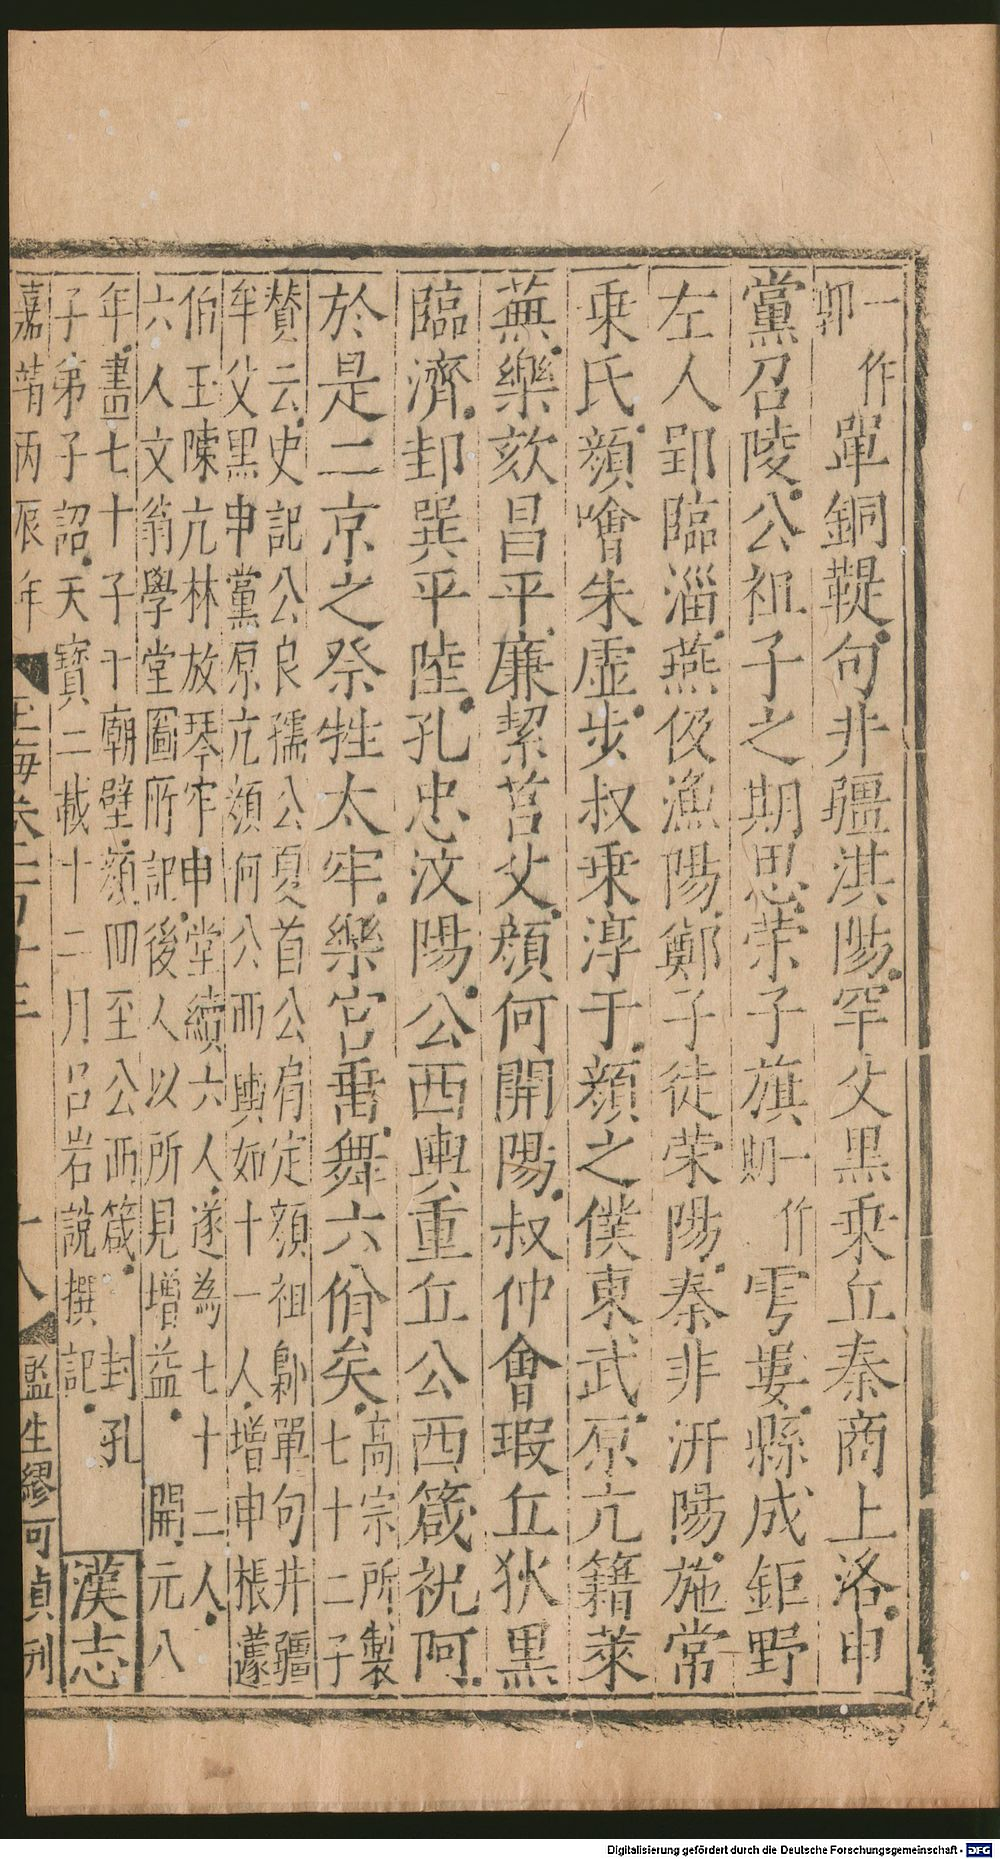 一作郭單銅鞮句井疆淇陽罕父黑乘丘秦商上洛申
黨召陵公祖子之期思荣子旗一作期雩婁縣成鉅野
左人郢臨淄燕伋漁陽鄭子徒荣陽秦非汧陽施常
乘氏顔噲朱虚步叔乘淳于顔之僕東武原亢籍萊
蕪樂欬昌平廉絜莒父顔何開陽叔仲會瑕丘狄黑
臨濟邽巽平陸孔忠汶陽公西輿重丘公西箴祝阿
於是二京之祭牲太牢樂宫垂舞六佾矣高宗所製
七十二子
賛云史記公良孺公夏首公肩定顔祖鄡單句井疆
牟父黑申黨原亢顔何公西輿如十一人增申棖蘧
伯玉陳亢林放琴牢申堂續六人遂為七十二人
六人文翁學堂圖所記後人以所見增益 開元八
年畫七十子于廟壁顔回至公西箴 封孔
子弟子詔天寶二載十二月吕岩說撰記
漢志
嘉靖丙辰年 玉海卷二百十三 十八 監生繆可貞刊
Digitalisierung gefördert durch die Deutsche Forschungsgemeinschaft - DFG